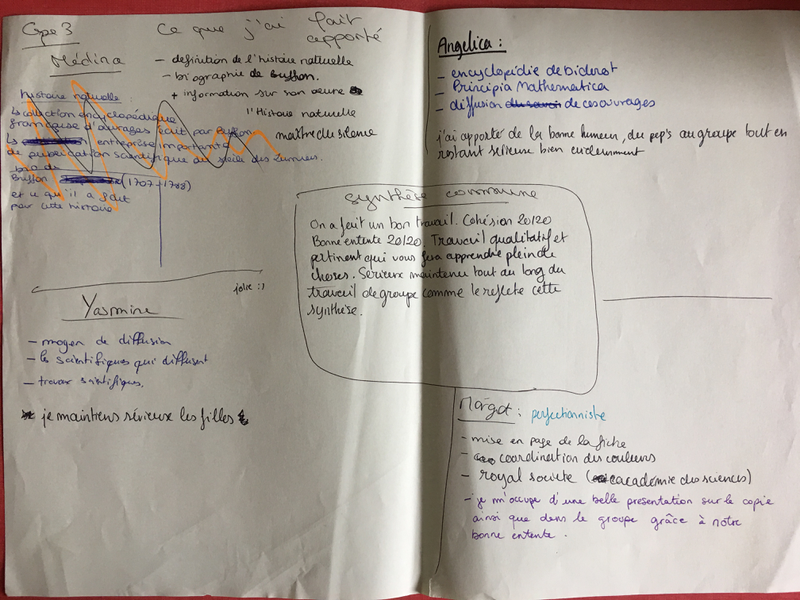 Gpe 3
Ce que j'ai fait
apporté
Médina
- définition de l'histoire naturelle
- biographie de Buffon.
+ information sur son oeuvre
l'Histoire naturelle
maître du silence
histoire naturelle :
↳ collection encyclopédique
française d'ouvrages écrit par Buffon
↳ entreprise importante
de publication scientifique du siècle des Lumières.
Buffon (1707-1788)
et ce qu'il a fait
pour cette histoire
jolie :)
Yasmine
- moyen de diffusion
- les scientifiques qui diffusent
- travaux scientifiques,
je maintiens sérieuse les filles
Angelica :
- encyclopédie de Diderot
- Principia Mathematica
- diffusion de ces ouvrages
j'ai apporté de la bonne humeur, du pep's au groupe tout en
restant sérieuse bien evidemment
Synthèse commune
On a fait un bon travail. Cohésion 20/20
Bonne entente 20/20. Travail qualitatif et
pertinent qui vous fera apprendre plein de
choses. Sérieux maintenu tout au long du
travail de groupe comme le reflète cette
synthèse.
Margot : perfectionniste
- mise en page de la fiche
- coordination des couleurs
- royal société (academie des sciences)
- je m'occupe d'une belle presentation sur la copie
ainsi que dans le groupe grâce à notre
bonne entente.